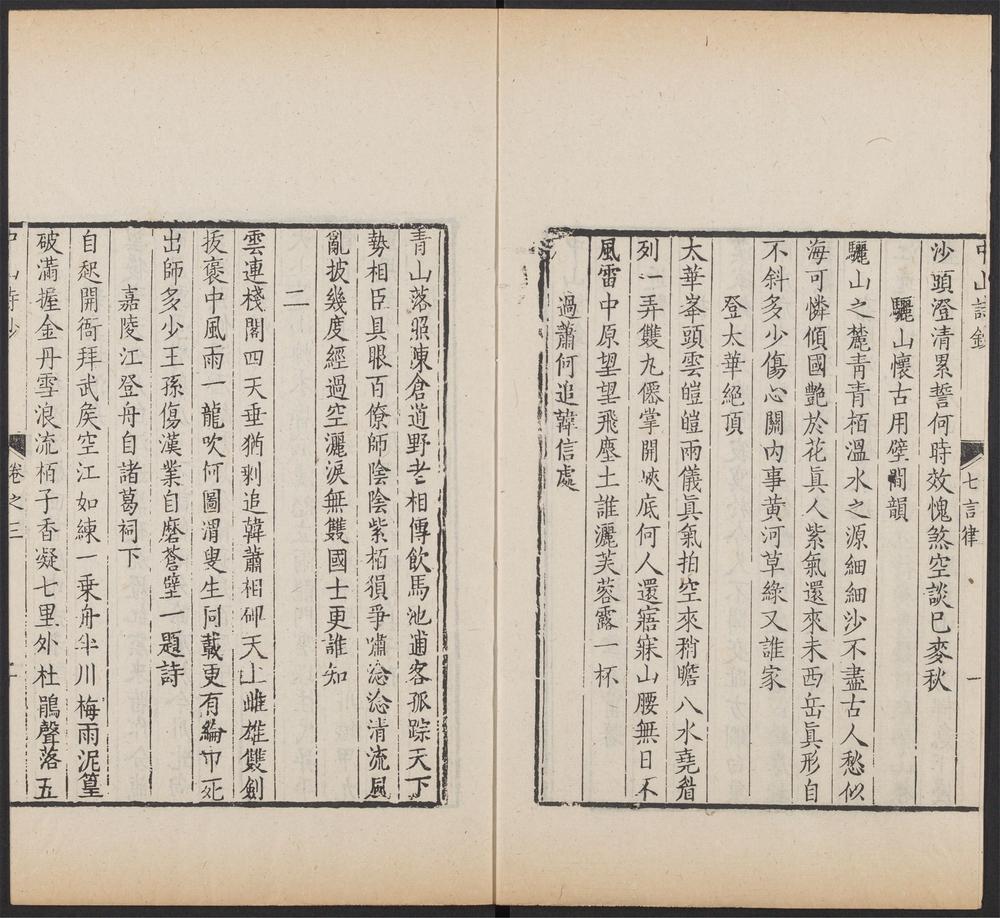 中山詩鈔
七言律
一
沙頭澄清累誓何時效愧煞空談已麥秋
驪山懷古用壁間韻
驪山之麓靑靑栢溫水之源細細沙不盡古人愁似
海可憐傾國艷於花眞人紫氣還來未西岳眞形自
不斜多少傷心關內事黄河草綠又誰家
登太華絕頂
太華峯頭雲皚皚兩儀眞氣拍空來稍瞻八水堯眉
列一弄雙丸僊掌開峽底何人還寤寐山腰無日不
風雷中原望望飛塵土誰灑芙蓉露一杯
過蕭何追韓信處
青山落照陳倉道野老相傳飲馬池逋客孤踪天下
勢相臣具眼百僚師陰陰紫栢猿爭嘯淰淰清流風
亂披幾度經過空灑淚無雙國士更誰知
二
雲連棧閣四天垂猶剩追韓蕭相碑天上雌雄雙劍
拔褒中風雨一龍吹何圖渭叟生同載更有綸巾死
出師多少王孫傷漢業自磨蒼壁一題詩
嘉陵江登舟自諸葛祠下
自起開衙拜武矦空江如練一乗舟半川梅雨泥篁
破滿握金丹雪浪流栢子香凝七里外杜鵑聲落五
中山詩鈔
卷之三